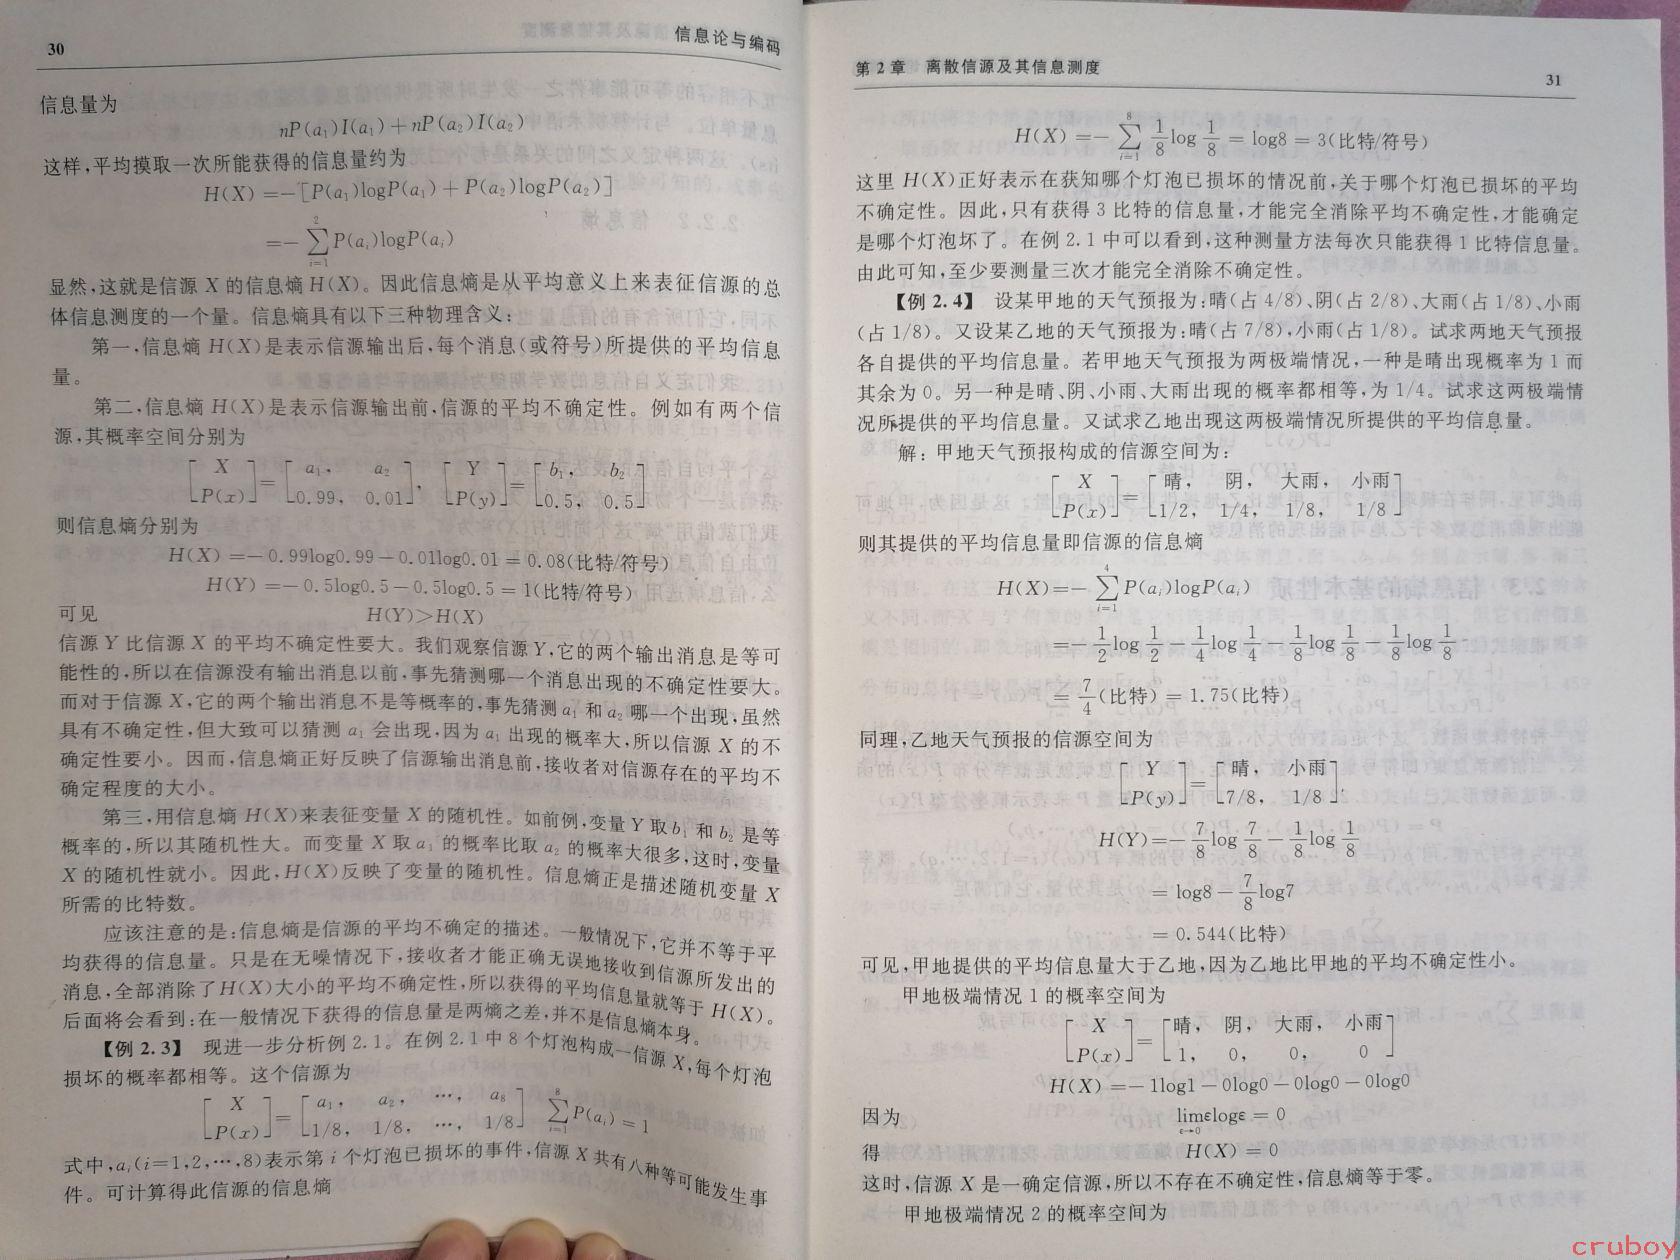 30
信息论与编码
信息量为
nP(a₁)I(a₁)+nP(a₂)I(a₂)
这样,平均摸取一次所能获得的信息量约为
H(X)=−[P(a₁)logP(a₁)+P(a₂)logP(a₂)]
=−∑_{i=1}^{2}P(aᵢ)logP(aᵢ)
显然,这就是信源 X 的信息熵 H(X)。因此信息熵是从平均意义上来表征信源的总
体信息测度的一个量。信息熵具有以下三种物理含义:
第一,信息熵 H(X)是表示信源输出后,每个消息(或符号)所提供的平均信息
量。
第二,信息熵 H(X)是表示信源输出前,信源的平均不确定性。例如有两个信
源,其概率空间分别为
[X P(x)]=[a₁, a₂ 0.99, 0.01], [Y P(y)]=[b₁, b₂ 0.5, 0.5]
则信息熵分别为
H(X)=−0.99log0.99−0.01log0.01=0.08(比特/符号)
H(Y)=−0.5log0.5−0.5log0.5=1(比特/符号)
可见 H(Y)>H(X)
信源 Y 比信源 X 的平均不确定性要大。我们观察信源 Y,它的两个输出消息是等可
能性的,所以在信源没有输出消息以前,事先猜测哪一个消息出现的不确定性要大。
而对于信源 X,它的两个输出消息不是等概率的,事先猜测 a₁ 和 a₂ 哪一个出现,虽然
具有不确定性,但大致可以猜测 a₁ 会出现,因为 a₁ 出现的概率大,所以信源 X 的不
确定性要小。因而,信息熵正好反映了信源输出消息前,接收者对信源存在的平均不
确定程度的大小。
第三,用信息熵 H(X)来表征变量 X 的随机性。如前例,变量 Y 取 b₁ 和 b₂ 是等
概率的,所以其随机性大。而变量 X 取 a₁ 的概率比取 a₂ 的概率大很多,这时,变量
X 的随机性就小。因此,H(X)反映了变量的随机性。信息熵正是描述随机变量 X
所需的比特数。
应该注意的是:信息熵是信源的平均不确定的描述。一般情况下,它并不等于平
均获得的信息量。只是在无噪情况下,接收者才能正确无误地接收到信源所发出的
消息,全部消除了 H(X)大小的平均不确定性,所以获得的平均信息量就等于 H(X)。
后面将会看到:在一般情况下获得的信息量是两熵之差,并不是信息熵本身。
【例 2.3】 现进一步分析例 2.1。在例 2.1 中 8 个灯泡构成一信源 X,每个灯泡
损坏的概率都相等。这个信源为
[X P(x)]=[a₁, a₂, …, a₈ 1/8, 1/8, …, 1/8] ∑_{i=1}^{8}P(aᵢ)=1
式中,aᵢ(i=1,2,…,8)表示第 i 个灯泡已损坏的事件,信源 X 共有八种等可能发生事
件。可计算得此信源的信息熵
第 2 章 离散信源及其信息测度
31
H(X)=−∑_{i=1}^{8} 1/8 log 1/8=log8=3(比特/符号)
这里 H(X)正好表示在获知哪个灯泡已损坏的情况前,关于哪个灯泡已损坏的平均
不确定性。因此,只有获得 3 比特的信息量,才能完全消除平均不确定性,才能确定
是哪个灯泡坏了。在例 2.1 中可以看到,这种测量方法每次只能获得 1 比特信息量。
由此可知,至少要测量三次才能完全消除不确定性。
【例 2.4】 设某甲地的天气预报为:晴(占 4/8)、阴(占 2/8)、大雨(占 1/8)、小雨
(占 1/8)。又设某乙地的天气预报为:晴(占 7/8),小雨(占 1/8)。试求两地天气预报
各自提供的平均信息量。若甲地天气预报为两极端情况,一种是晴出现概率为 1 而
其余为 0。另一种是晴、阴、小雨、大雨出现的概率都相等,为 1/4。试求这两极端情
况所提供的平均信息量。又试求乙地出现这两极端情况所提供的平均信息量。
解: 甲地天气预报构成的信源空间为:
[X P(x)]=[晴, 阴, 大雨, 小雨 1/2, 1/4, 1/8, 1/8]
则其提供的平均信息量即信源的信息熵
H(X)=−∑_{i=1}^{4}P(aᵢ)logP(aᵢ)
=−1/2 log 1/2−1/4 log 1/4−1/8 log 1/8−1/8 log 1/8
=7/4(比特)=1.75(比特)
同理,乙地天气预报的信源空间为
[Y P(y)]=[晴, 小雨 7/8, 1/8]
H(Y)=−7/8 log 7/8−1/8 log 1/8
=log8−7/8 log7
=0.544(比特)
可见,甲地提供的平均信息量大于乙地,因为乙地比甲地的平均不确定性小。
甲地极端情况 1 的概率空间为
[X P(x)]=[晴, 阴, 大雨, 小雨 1, 0, 0, 0]
H(X)=−1log1−0log0−0log0−0log0
因为 lim_{ε→0}εlogε=0
得 H(X)=0
这时,信源 X 是一确定信源,所以不存在不确定性,信息熵等于零。
甲地极端情况 2 的概率空间为
cruboy